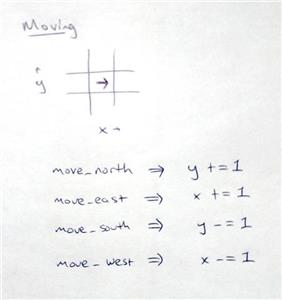 Moving
y
x →
move_north ⇒ y += 1
move_east ⇒ x += 1
move_south ⇒ y -= 1
move_west ⇒ x -= 1